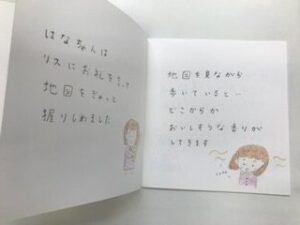 はなちゃんは
リスにお礼をいって
地図をぎゅっと
握りしめました
地図を見ながら
歩いていると…
どこからか
おいしそうな香りが
してきます